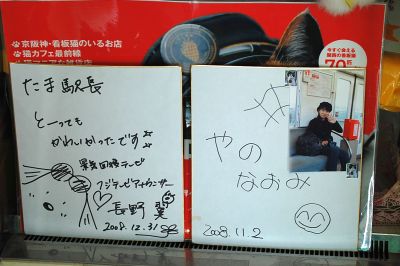 京阪神・看板猫のいるお店
猫カフェ最前線
今すぐ会える
関西の看板猫
70匹
たま駅長
とーっても
かわいかったです
フジテレビアナウンサー
長野 翼
2008.12.31
やの
なおみ
2008.11.2